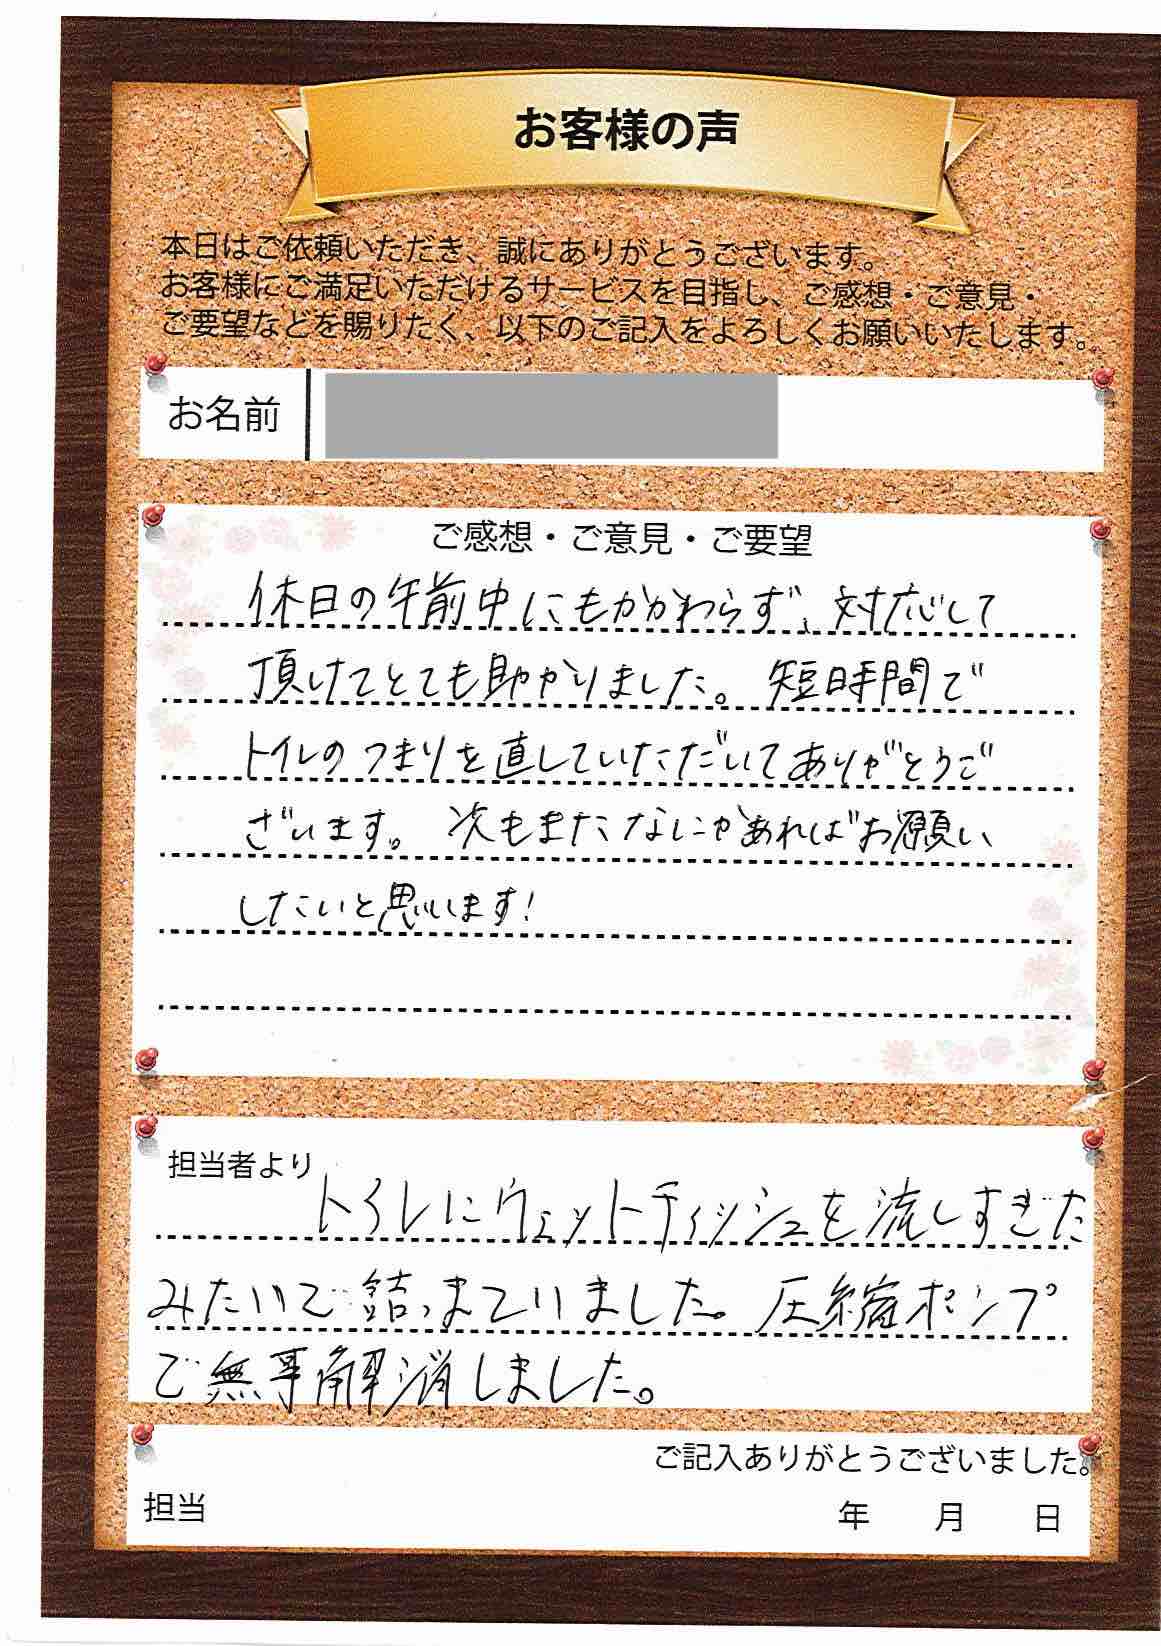 お客様の声
本日はご依頼いただき、誠にありがとうございます。
お客様にご満足いただけるサービスを目指し、ご感想・ご意見・
ご要望などを賜りたく、以下のご記入をよろしくお願いいたします。
お名前
ご感想・ご意見・ご要望
休日の午前中にもかかわらず、対応して
頂けてとても助かりました。短時間で
トイレのつまりを直していただいてありがとうご
ざいます。次もまたなにかあればお願い
したいと思います!
担当者より
トイレにウェットティッシュを流しすぎた
みたいで詰まっていました。圧縮ポンプ
で無事解消しました。
ご記入ありがとうございました。
担当 年 月 日